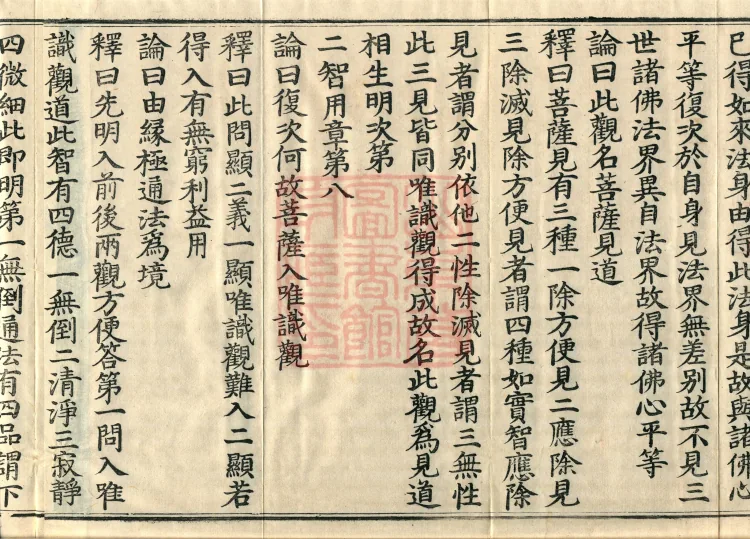 已得如來法身由得此法身是故與諸佛心
平等復次於自身見法界無差別故不見三
世諸佛法界異自法界故得諸佛心平等
論曰此觀名菩薩見道
釋曰菩薩見有三種一除方便見二應除見
三除滅見除方便見者謂四種如實智應除
見者謂分別依他二性除滅見者謂三無性
此三見皆同唯識觀得成故名此觀爲見道
相生明次第
二智用章第八
論曰復次何故菩薩入唯識觀
釋曰此問顯二義一顯唯識觀難入二顯若
得入有無窮利益用
論曰由緣極通法爲境
釋曰先明入前後兩觀方便答第一問入唯
識觀道此智有四德一無倒二清淨三寂靜
四微細此即明第一無倒通法有四品謂下